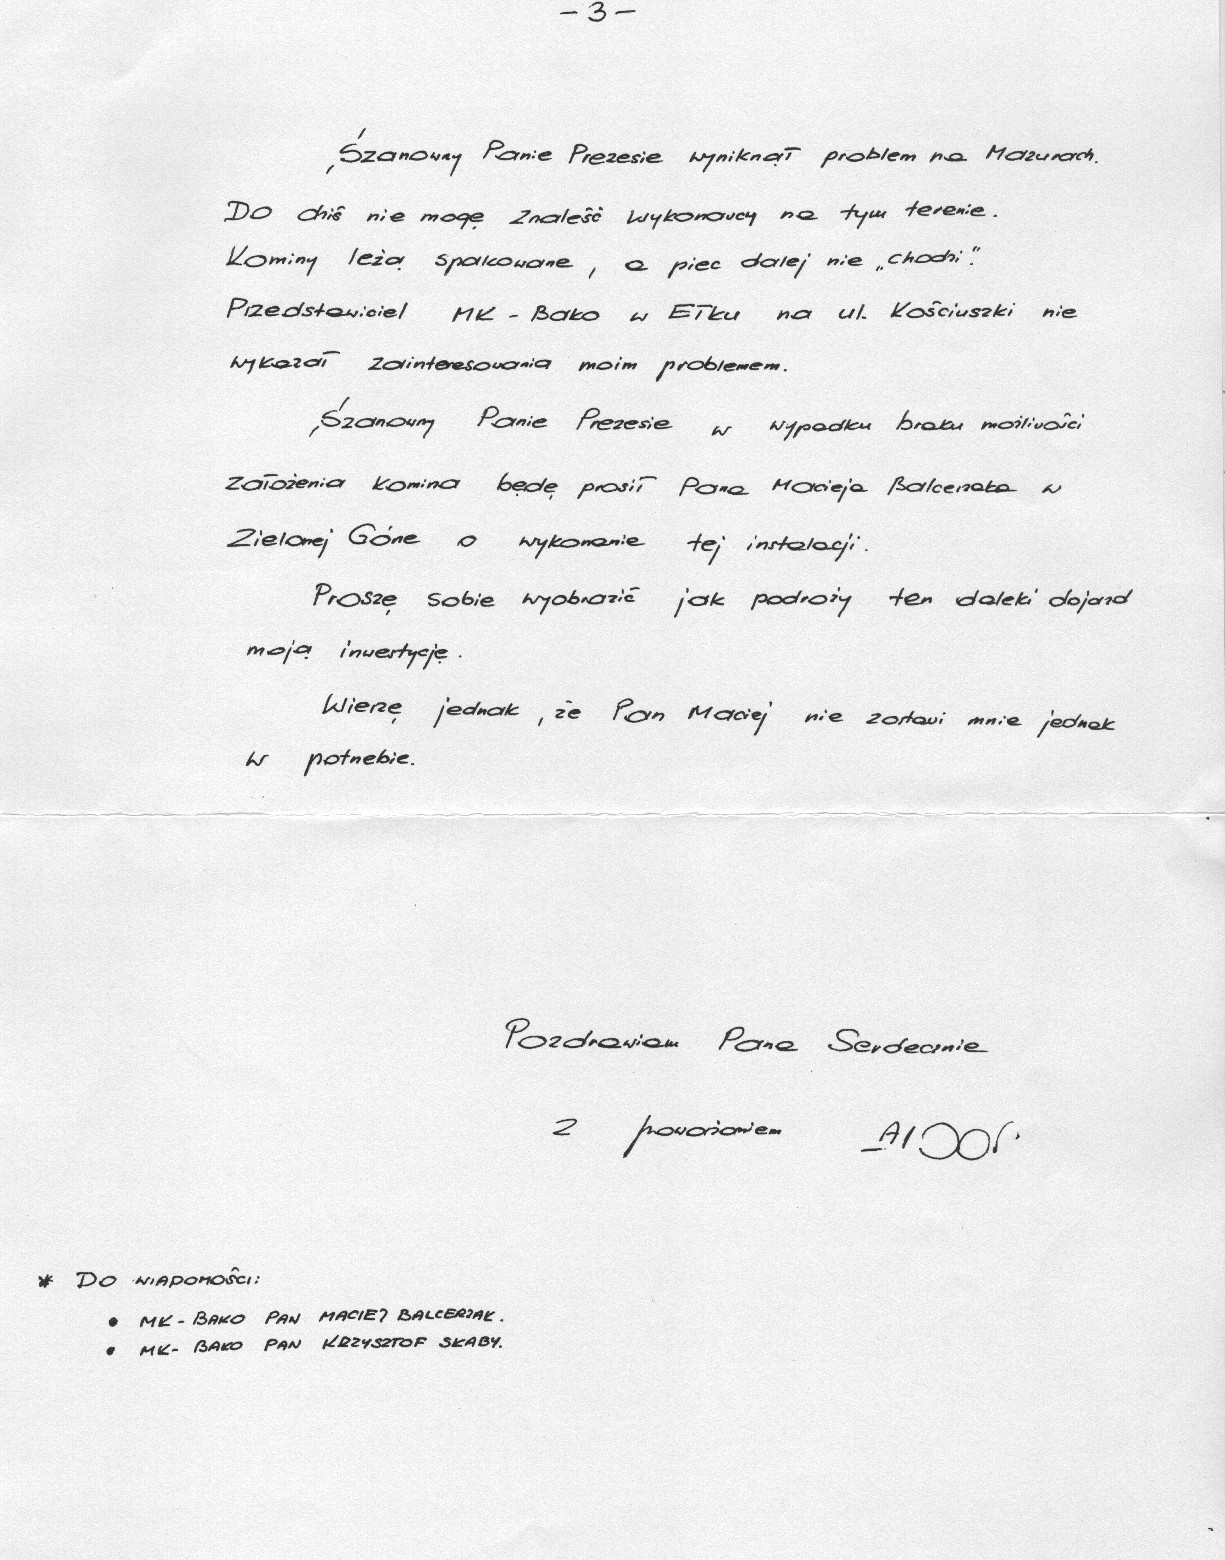 - 3 -
Szanowny Panie Prezesie wyniknął problem na Mazurach.
Do dniś nie mogę znaleść wykonawcy na tym terenie.
Kominy leżą spakowane, a piec dalej nie „chodzi".
Przedstawiciel MK - Bako w Ełku na ul. Kościuszki nie
wykazał zainteresowania moim problemem.
Szanowny Panie Prezesie w wypadku braku możliwości
założenia komina będę prosił Pana Macieja Balcerzaka w
Zielonej Górze o wykonanie tej instalacji.
Proszę sobie wyobrazić jak podroży ten daleki dojazd
moją inwestycję.
Wierzę jednak, że Pan Maciej nie zostawi mnie jednak
w potrzebie.
Pozdrawiam Pana Serdecznie
Z poważaniem
* DO WIADOMOŚCI:
• MK - BAKO PAN MACIEJ BALCERZAK.
• MK - BAKO PAN KRZYSZTOF SKABY.